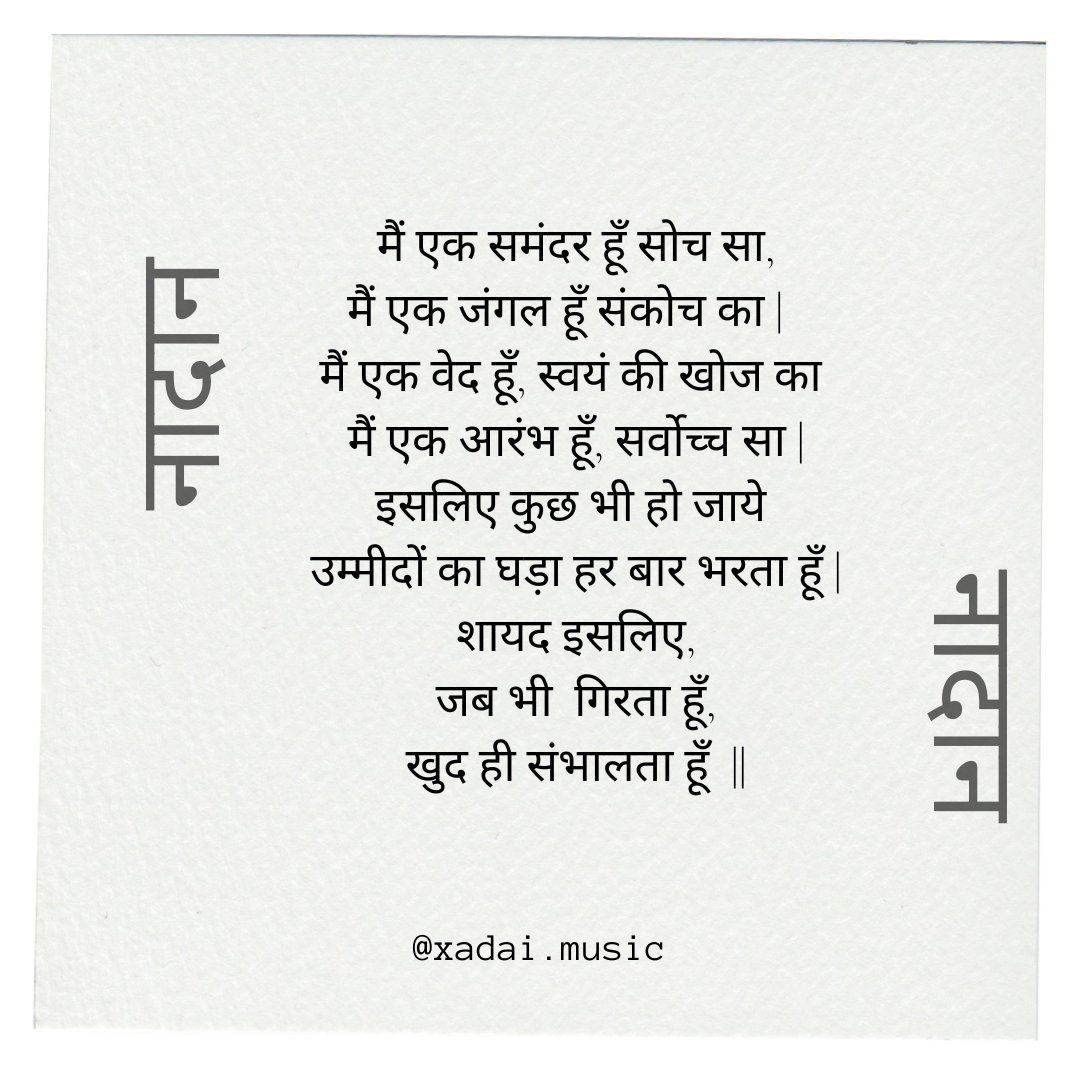 नादान
मैं एक समंदर हूँ सोच सा,
मैं एक जंगल हूँ संकोच का |
मैं एक वेद हूँ, स्वयं की खोज का
मैं एक आरंभ हूँ, सर्वोच्च सा |
इसलिए कुछ भी हो जाये
उम्मीदों का घड़ा हर बार भरता हूँ |
शायद इसलिए,
जब भी गिरता हूँ,
खुद ही संभालता हूँ ||
नादान
@xadai.music